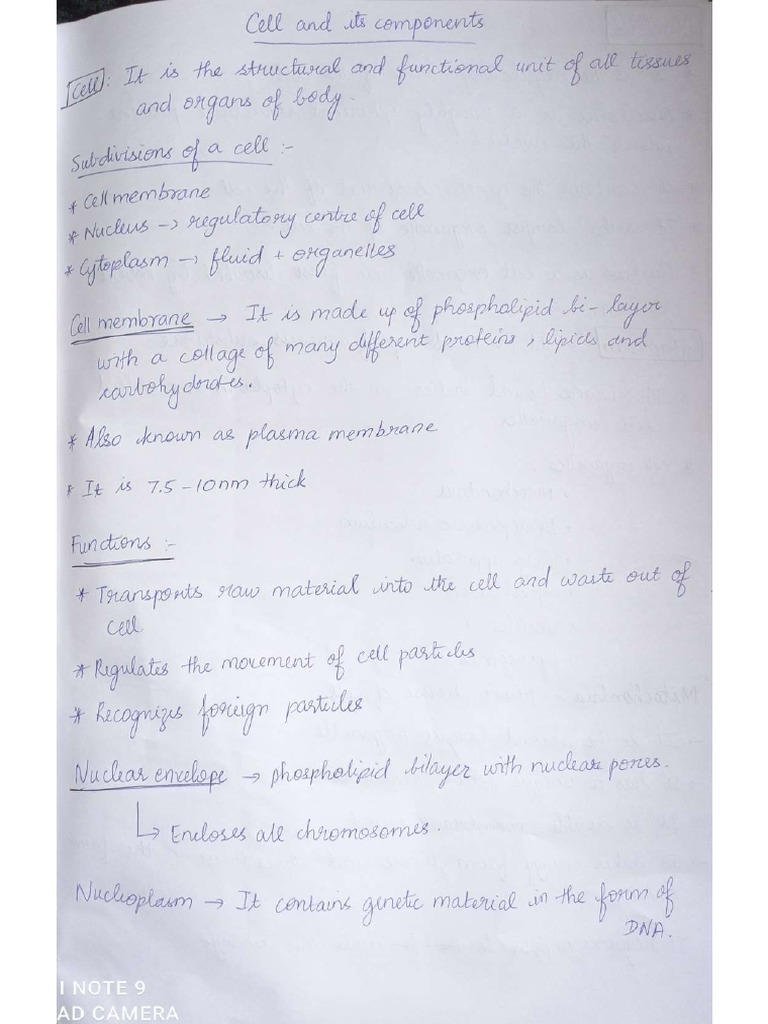 Cell and its components
Cell : It is the structural and functional unit of all tissues
and organs of body.
Subdivisions of a cell :-
* Cell membrane
* Nucleus → regulatory centre of cell
* Cytoplasm → fluid + organelles
Cell membrane → It is made up of phospholipid bi-layer
with a collage of many different proteins, lipids and
carbohydrates.
* Also known as plasma membrane
* It is 7.5-10nm thick
Functions :-
* Transports raw material into the cell and waste out of
cell
* Regulates the movement of cell particles
* Recognizes foreign particles
Nuclear envelope → phospholipid bilayer with nuclear pores.
↳ Encloses all chromosomes.
Nucleoplasm → It contains genetic material in the form of
DNA.
I NOTE 9
AD CAMERA